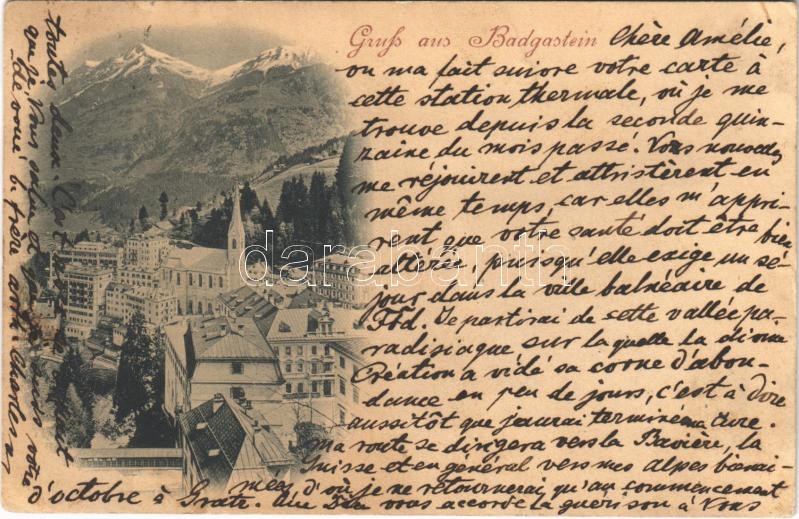 Gruß aus Badgastein
Chère Amélie,
on m'a fait suivre votre carte à
cette station thermale, où je me
trouve depuis la seconde quin-
zaine du mois passé. Vos nouvelles
me réjouirent et attristèrent en
même temps, car elles m'appri-
rent que votre santé doit être bien
altérée, puisqu'elle exige un sé-
jour dans la ville balnéaire de
Je partirai de cette vallée pa-
radisiaque sur laquelle la divine
Création a vidé sa corne d'abon-
dance en peu de jours, c'est à dire
aussitôt que j'aurai terminé ma cure.
Ma route se dirigera vers la Bavière, la
Suisse et en général vers mes alpes bienai-
mées, d'où je ne retournerai qu'au commencement
d'octobre à Graz. Que Dieu vous accorde la guérison à Vous
toutes deux.
que je Vous salue et
dévoué frère Charles
darabanth